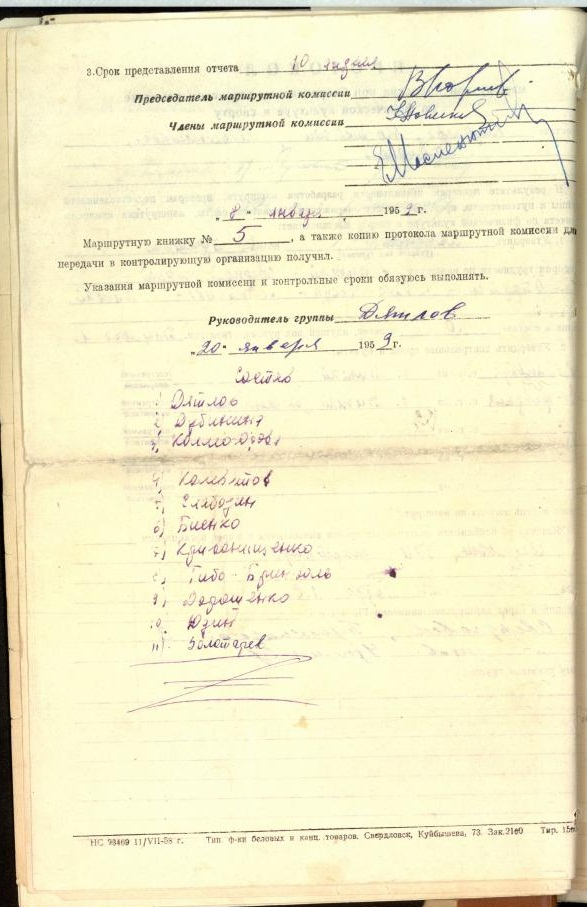 3.Срок представления отчета 10 
Председатель маршрутной комиссии В Корол
Члены маршрутной комиссии Новик
Масленников
"8" января 1959 г.
Маршрутную книжку № 5, а также копию протокола маршрутной комиссии для
передачи в контролирующую организацию получил.
Указания маршрутной комиссии и контрольные сроки обязуюсь выполнять.
Руководитель группы Дятлов
"20" января 1959 г.
Состав
1) Дятлов
2) Дубинина
3) Колмогорова
4) Колеватов
5) Слободин
6) Биенко
7) Кривонищенко
8) Тибо-Бриньоль
9) Дорошенко
10 Юдин
11) Золотарев
НС 28469 11/VII-58 г. Тип. ф-ки беловых и канц. товаров. Свердловск, Куйбышева, 73. Зак.2160 Тир. 150